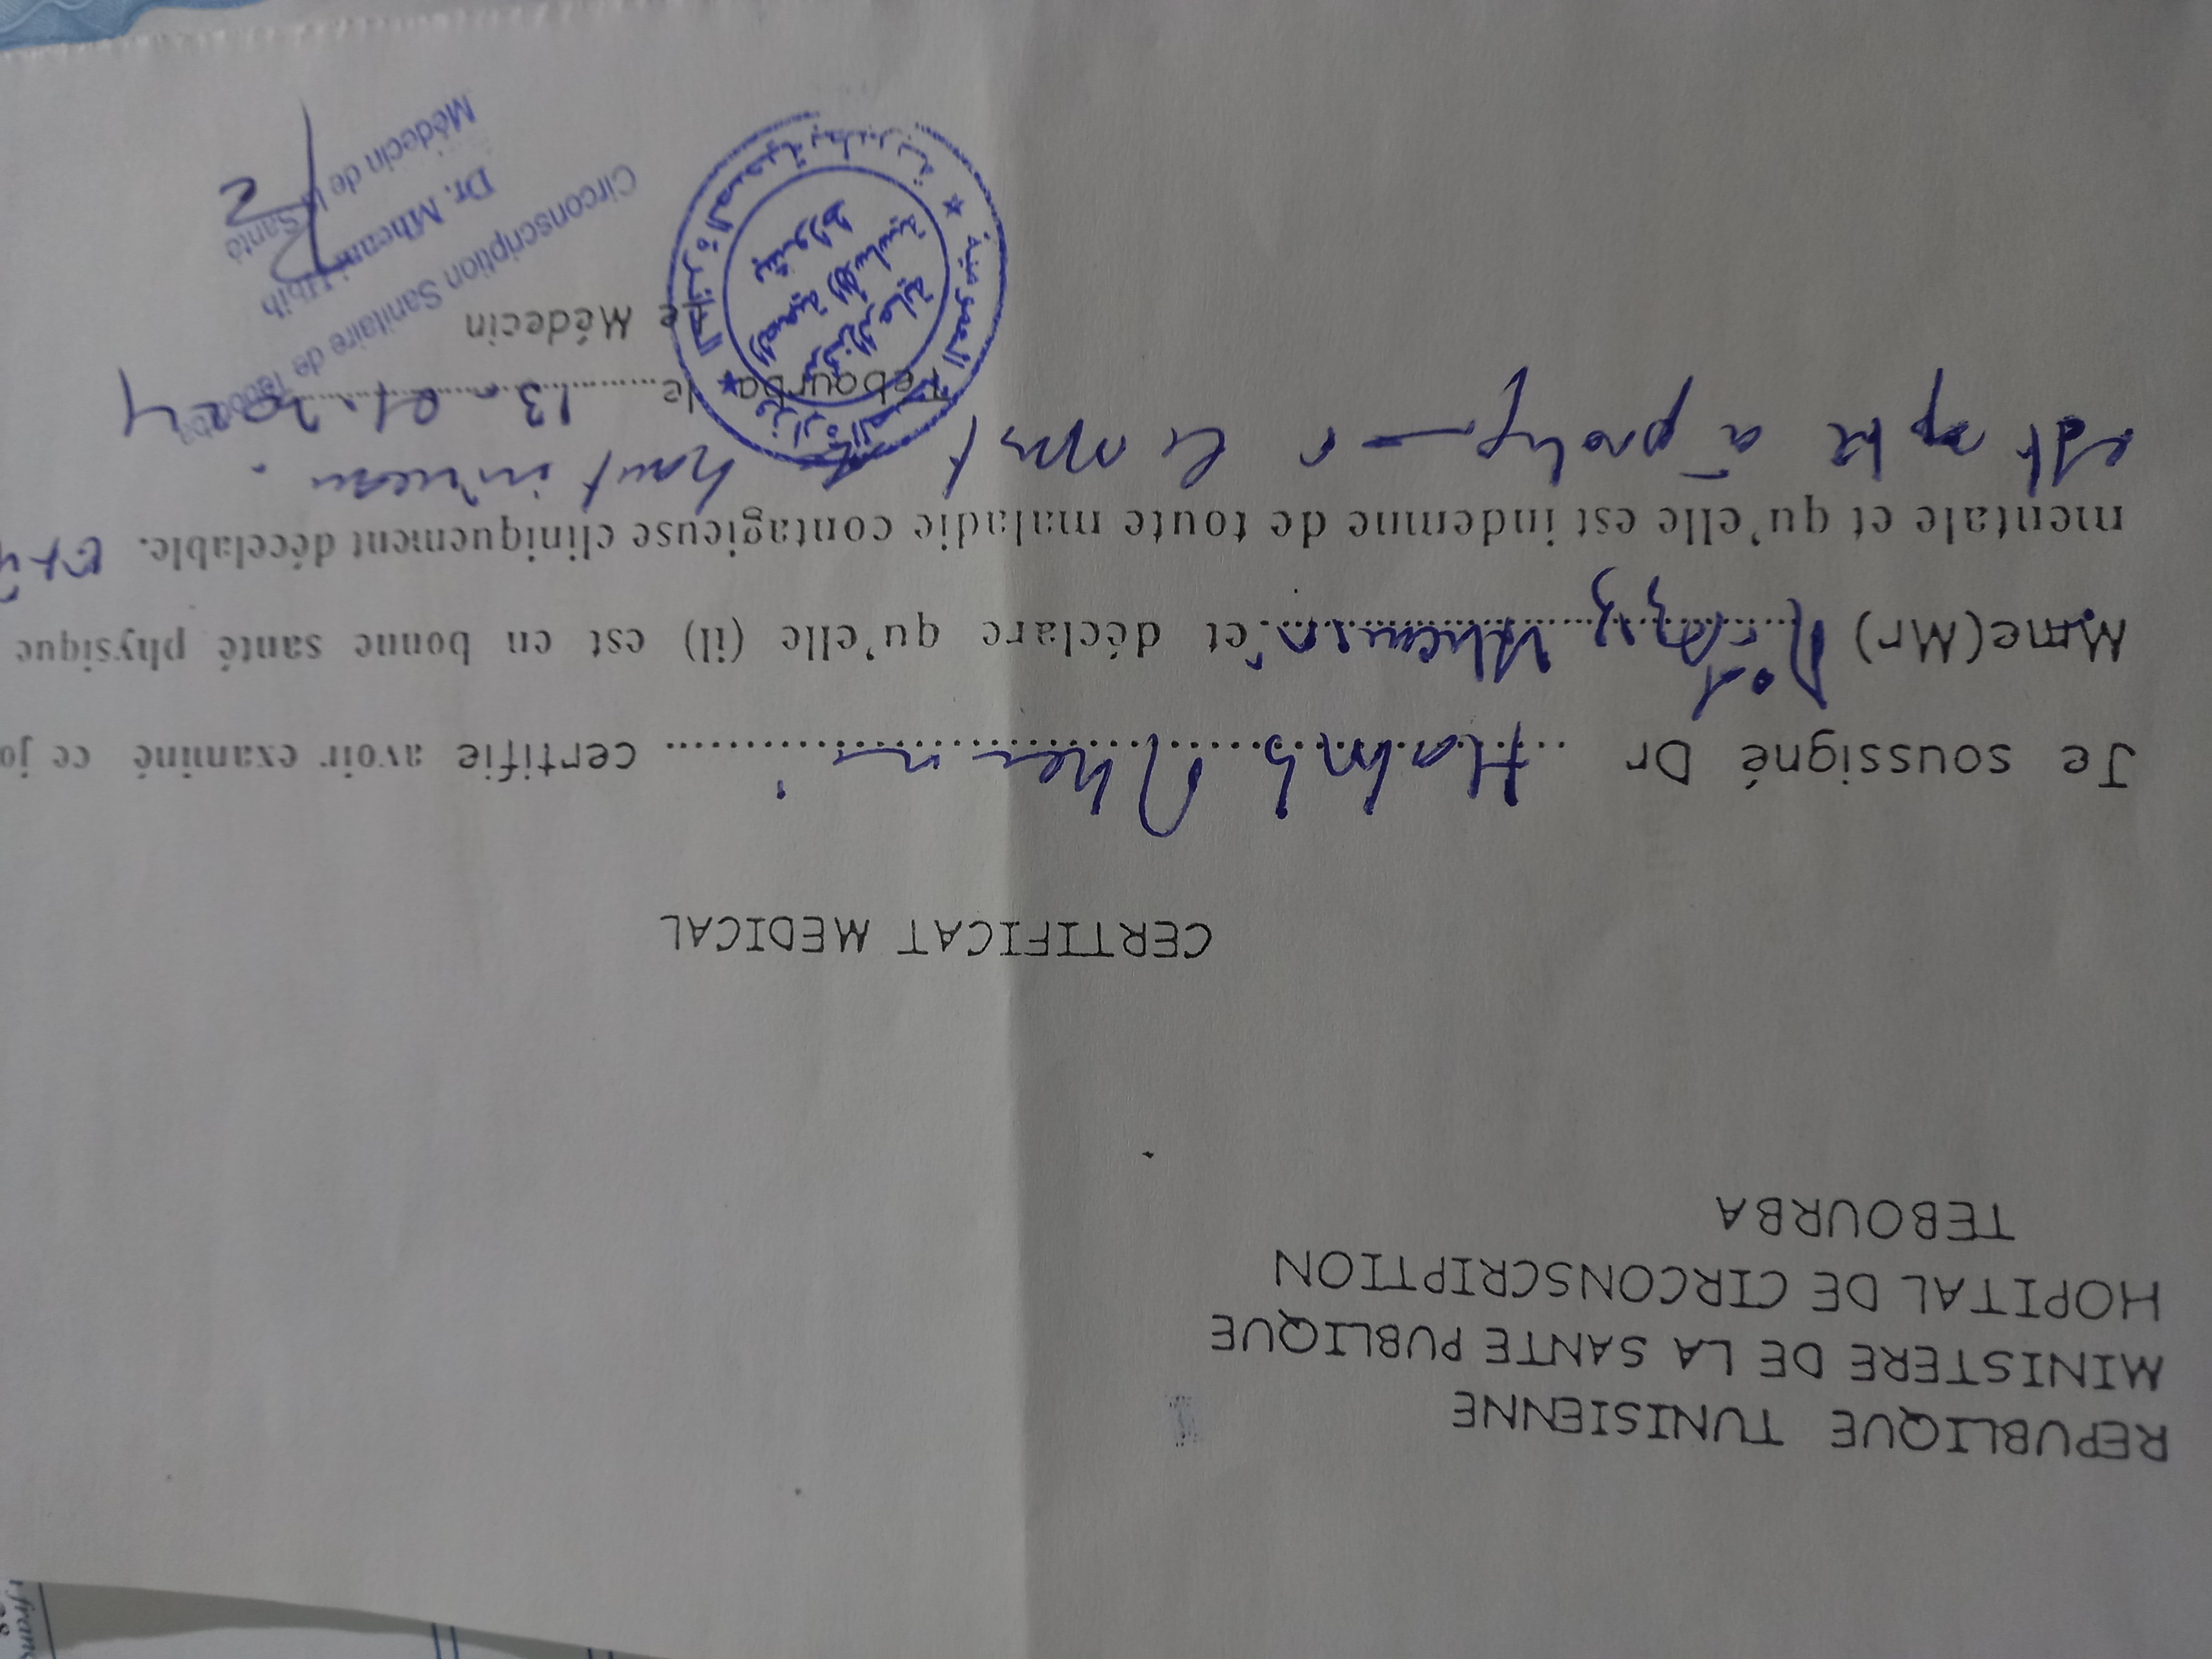 REPUBLIQUE TUNISIENNE
MINISTERE DE LA SANTE PUBLIQUE
HOPITAL DE CIRCONSCRIPTION
TEBOURBA
CERTIFICAT MEDICAL
Je soussigné Dr Habib Mheami certifie avoir examiné ce jo
Mme(Mr) et déclare qu'elle (il) est en bonne santé physique
mentale et qu'elle est indemne de toute maladie contagieuse cliniquement décelable. et q
est apte à haut niveau.
Tebourba le 13.01.2024
Le Médecin
Circonscription Sanitaire de Tebourba
Dr. Mheami Hbib
Médecin de la Santé